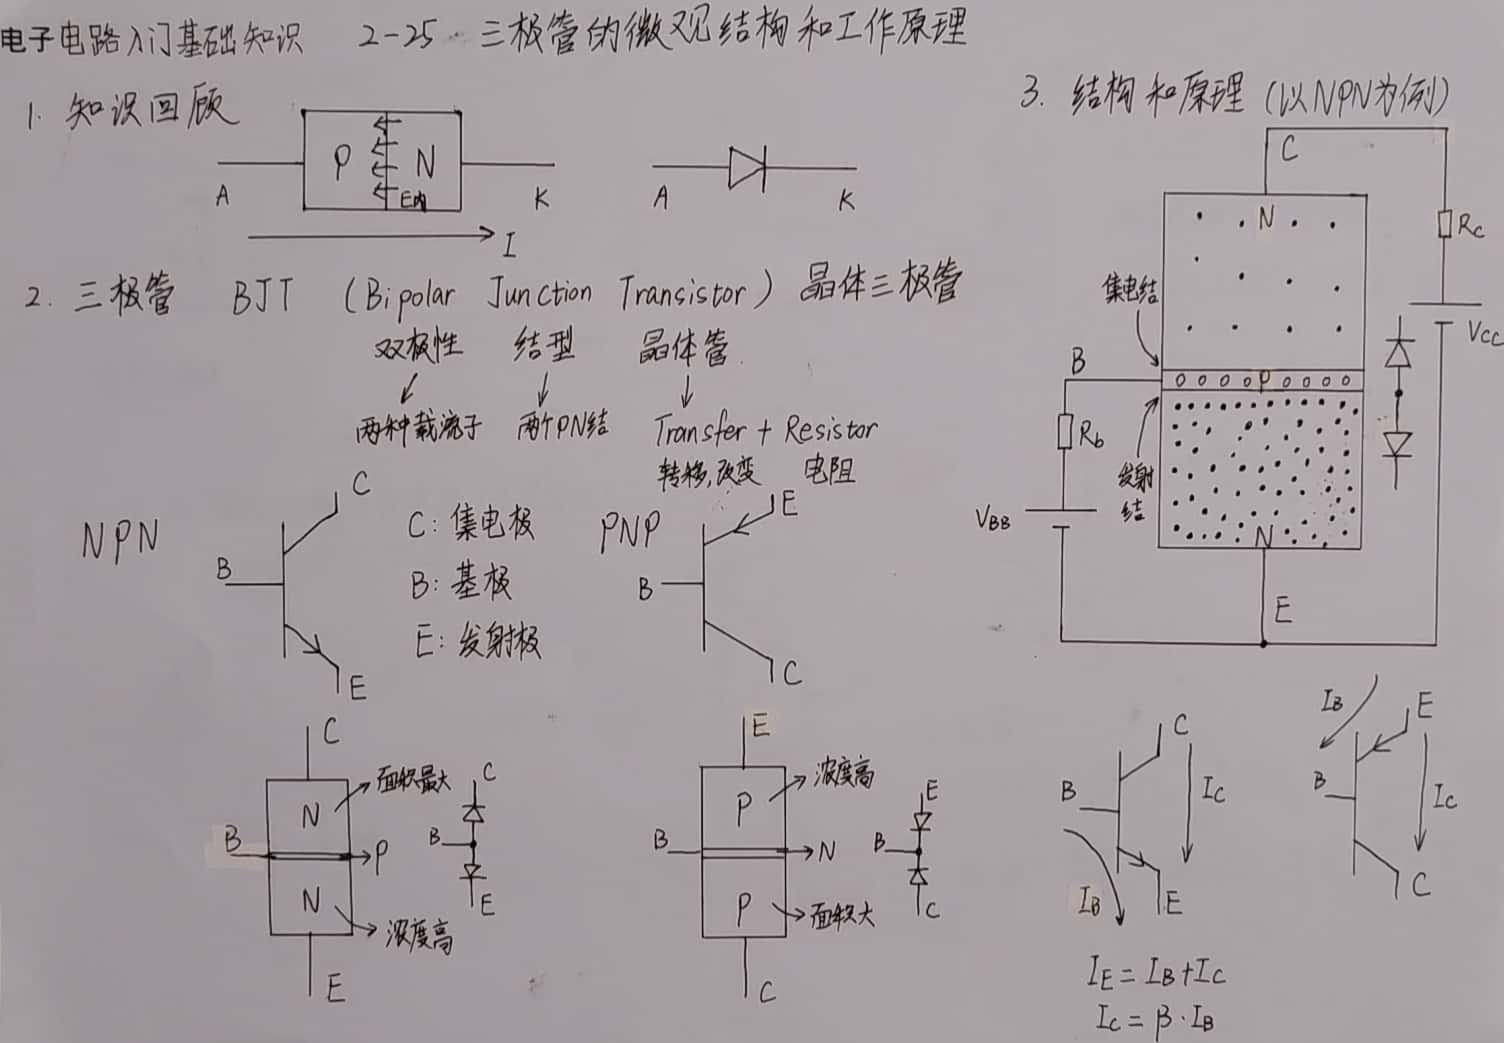 电子电路入门基础知识 2-25 三极管的微观结构和工作原理
1. 知识回顾
P N
E内
A K
I
A K
2. 三极管 BJT (Bipolar Junction Transistor) 晶体三极管
双极性 结型 晶体管
两种载流子 两个PN结 Transfer + Resistor
转移,改变 电阻
NPN
C
B
E
C: 集电极
B: 基极
E: 发射极
PNP
E
B
C
C
N 面积最大
B P
N 浓度高
E
C
B
E
E
P 浓度高
B N
P 面积大
C
E
B
C
3. 结构和原理 (以NPN为例)
C
N
Rc
集电结
Vcc
B
P
Rb
发射结
VBB
N
E
C
B
Ic
IB
E
IB
E
B
Ic
C
IE = IB + Ic
Ic = β·IB